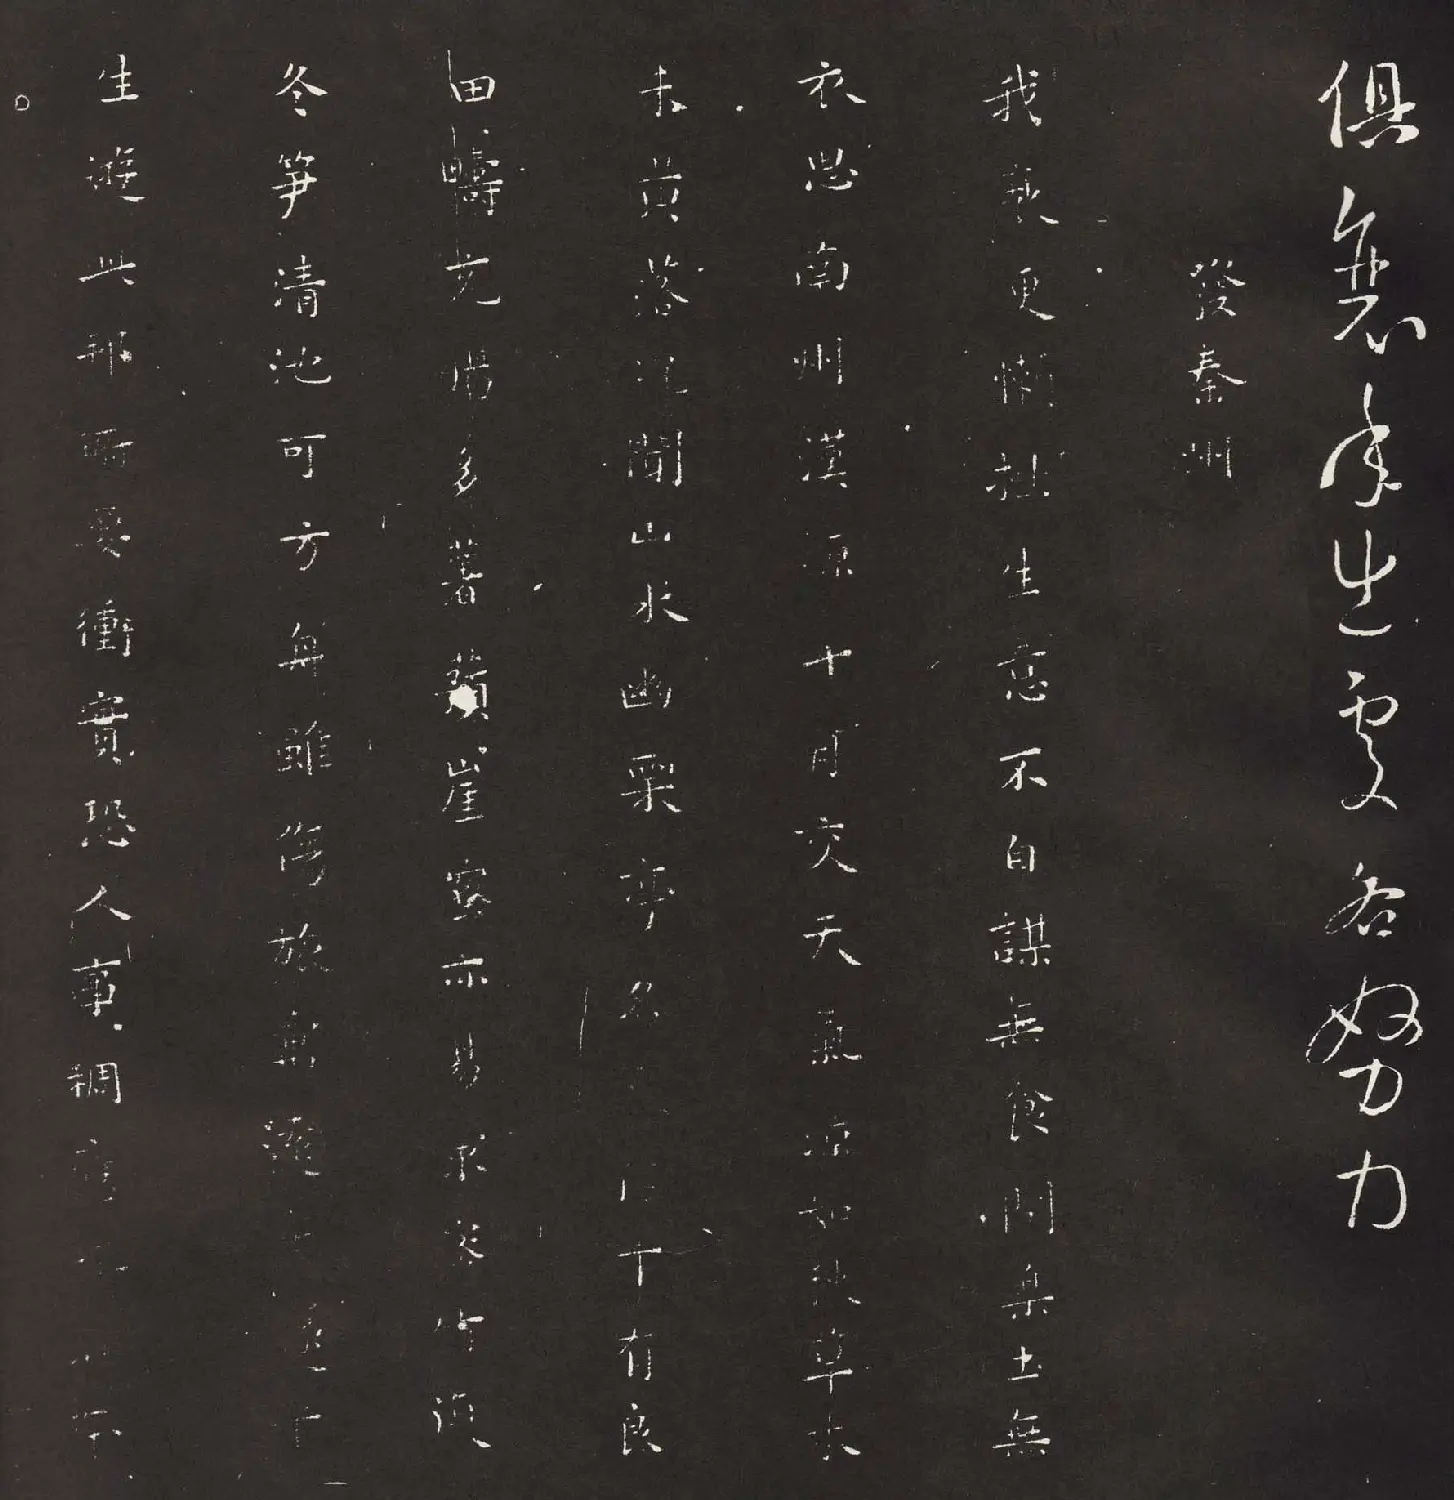 俱衰年出處各努力
發秦州
我衰更懶拙生意不自謀無食問樂土無
衣思南州漢源十月交天氣涼如秋草木
未黃落況聞山水幽栗亭名下有良
田疇充腸多薯蕷崖蜜亦易求密竹復
冬笋清池可方舟雖傷旅寓遠庶遂平
生遊此邦俯要衝實恐人事稠應